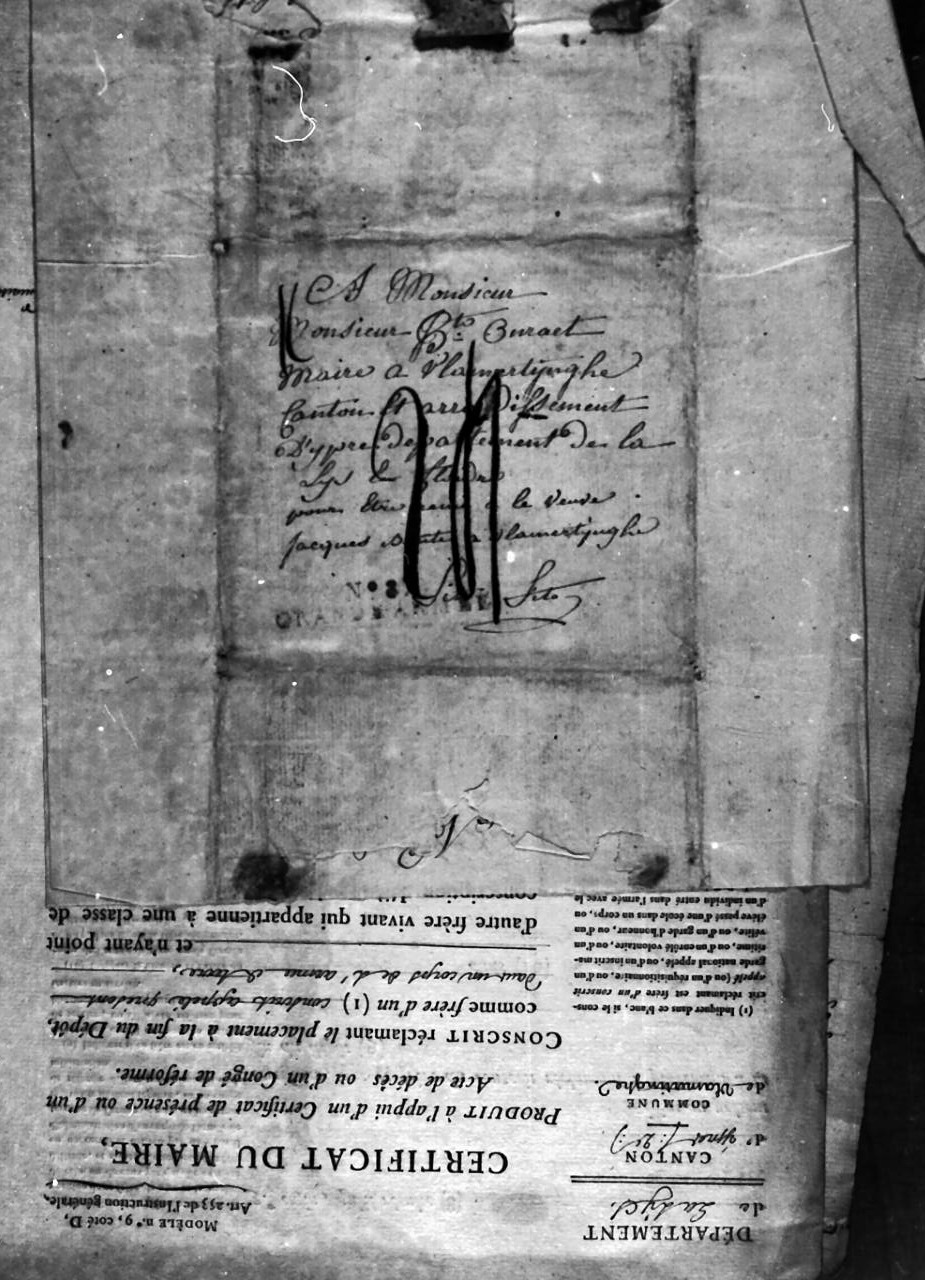 A Monsieur
Monsieur Bte Curaet
Maire a Vlamertynghe
Canton Et arrondissement
D'ypre departement de la
Lys
pour Etre remis a la veuve
jacques a Vlamertynghe
Cito Cito
No 8
DÉPARTEMENT
de La Lys.
CANTON
d'ypres (: 2e :)
COMMUNE
de Vlamertinghe.
(1) Indiquer dans ce blanc, si le cons-
crit réclamant est frère d'un conscrit
appelé (ou d'un réquisitionnaire, ou d'un
garde national appelé, ou d'un inscrit ma-
ritime, ou d'un enrôlé volontaire, ou d'un
vélite, ou d'un garde d'honneur, ou d'un
élève passé d'une école dans un corps, ou
d'un individu entré dans l'armée avec le
MODÈLE n.° 9, coté D,
Art. 253 de l'Instruction générale.
CERTIFICAT DU MAIRE,
PRODUIT à l'appui d'un Certificat de présence ou d'un
Acte de décès ou d'un Congé de réforme.
CONSCRIT réclamant le placement à la fin du Dépôt,
comme frère d'un (1) conscrit appelé, présent
dans un corps de l'armée active,
et n'ayant point
d'autre frère vivant qui appartienne à une classe de
conscription